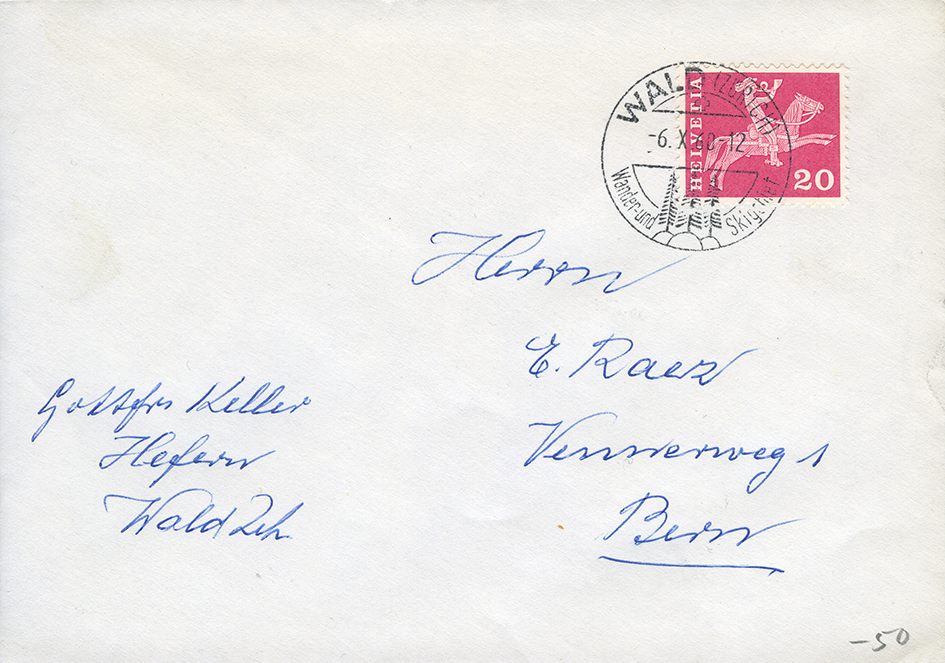 WALD (ZÜRICH)
-6.X.60-12
Wander-und Skigebiet
HELVETIA
20
Herrn
E. Raez
Vennerweg 1
Bern
Gottfr. Keller
Hefern
Wald Zch.
-50